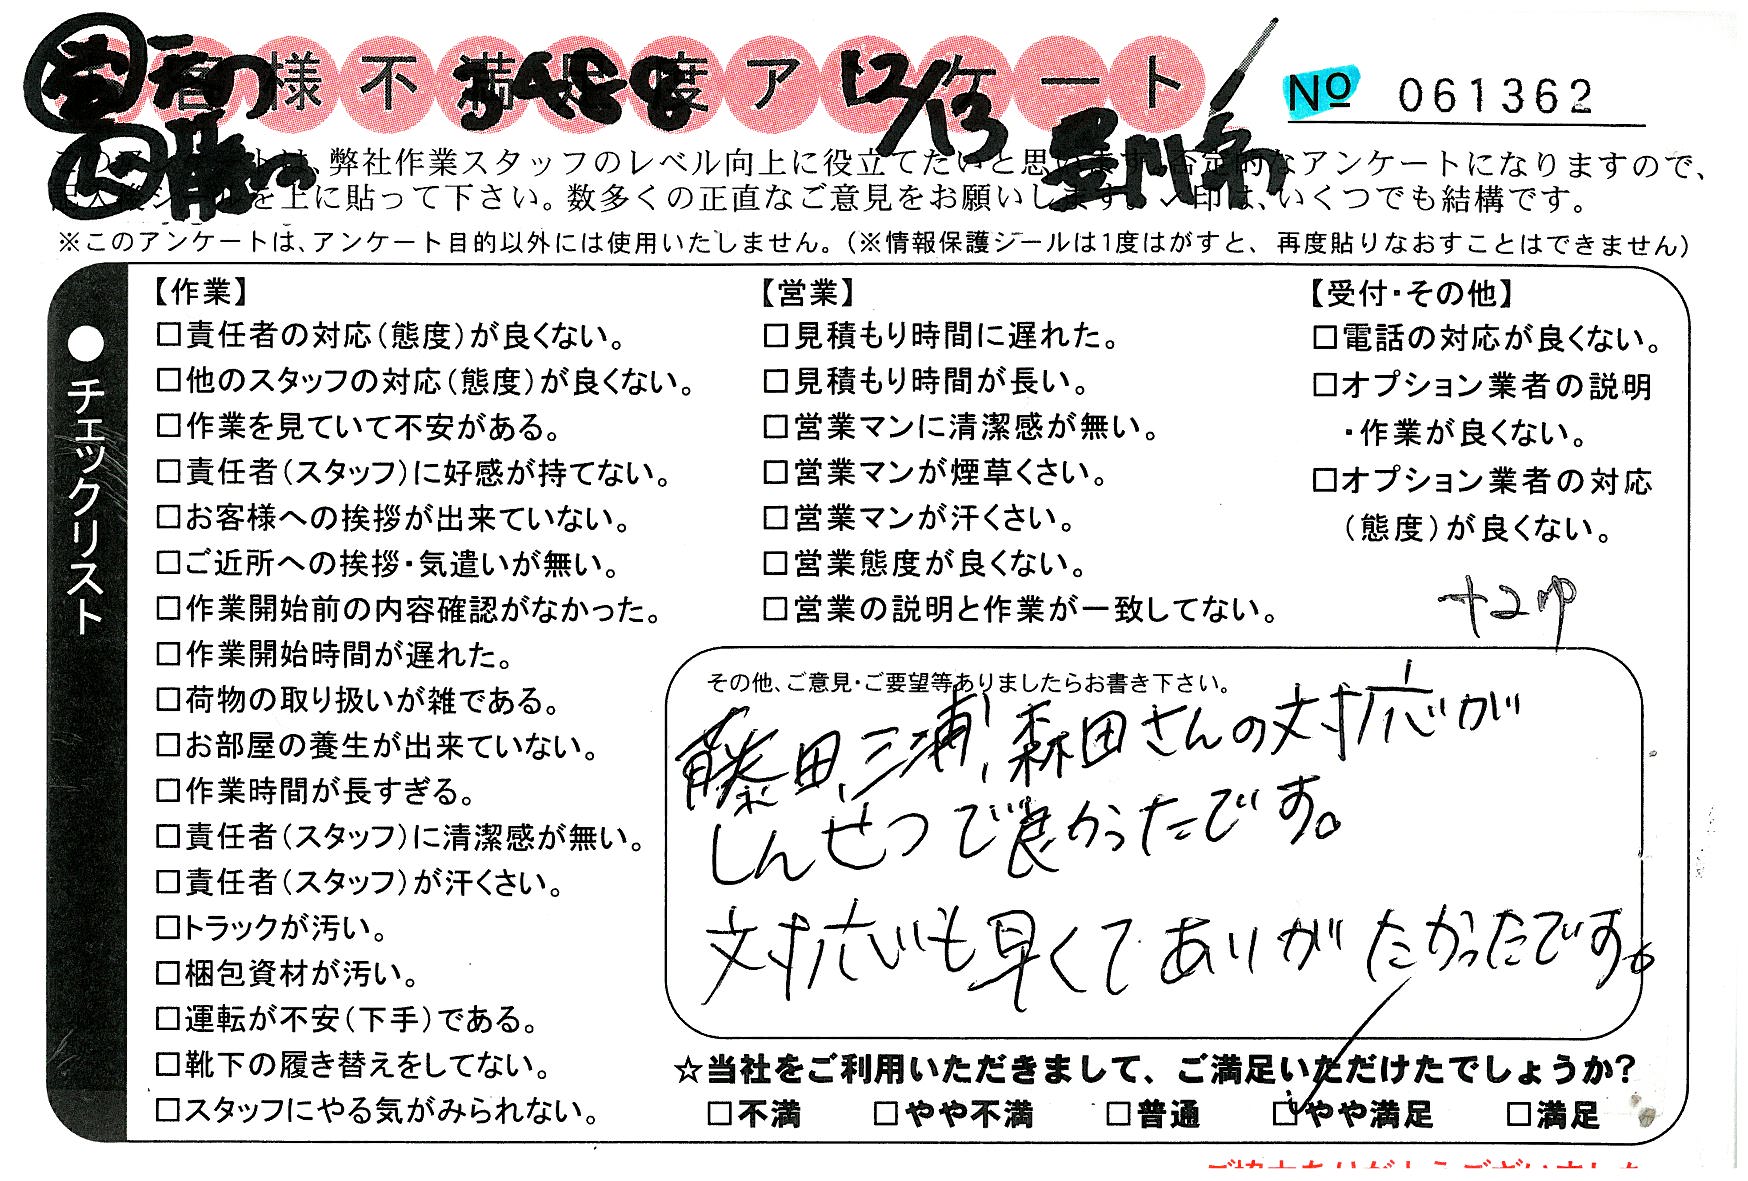 お客様不満足度アンケート
3488
12/13
No 061362
このアンケートは、弊社作業スタッフのレベル向上に役立てたいと思います。否定的なアンケートになりますので、
を上に貼って下さい。数多くの正直なご意見をお願いします。✓印は、いくつでも結構です。
※このアンケートは、アンケート目的以外には使用いたしません。(※情報保護シールは1度はがすと、再度貼りなおすことはできません)
●チェックリスト
【作業】
□責任者の対応(態度)が良くない。
□他のスタッフの対応(態度)が良くない。
□作業を見ていて不安がある。
□責任者(スタッフ)に好感が持てない。
□お客様への挨拶が出来ていない。
□ご近所への挨拶・気遣いが無い。
□作業開始前の内容確認がなかった。
□作業開始時間が遅れた。
□荷物の取り扱いが雑である。
□お部屋の養生が出来ていない。
□作業時間が長すぎる。
□責任者(スタッフ)に清潔感が無い。
□責任者(スタッフ)が汗くさい。
□トラックが汚い。
□梱包資材が汚い。
□運転が不安(下手)である。
□靴下の履き替えをしてない。
□スタッフにやる気がみられない。
【営業】
□見積もり時間に遅れた。
□見積もり時間が長い。
□営業マンに清潔感が無い。
□営業マンが煙草くさい。
□営業マンが汗くさい。
□営業態度が良くない。
□営業の説明と作業が一致してない。
【受付・その他】
□電話の対応が良くない。
□オプション業者の説明
・作業が良くない。
□オプション業者の対応
(態度)が良くない。
その他、ご意見・ご要望等ありましたらお書き下さい。
藤田、三浦、森田さんの対応が
しんせつで良かったです。
対応も早くてありがたかったです。
☆当社をご利用いただきまして、ご満足いただけたでしょうか?
□不満 □やや不満 □普通 ☑やや満足 □満足
ご協力ありがとうございました